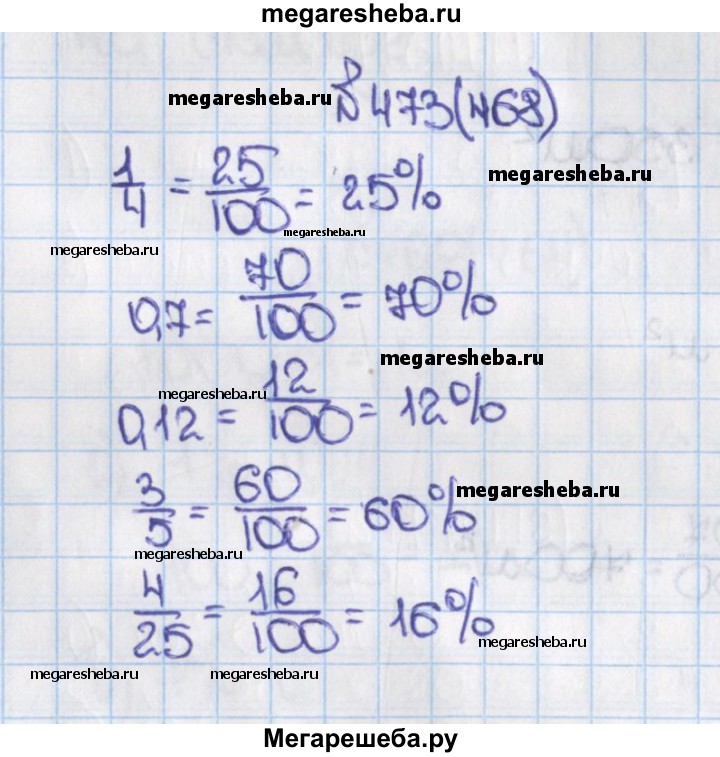 megaresheba.ru
megaresheba.ru
№ 473(468)
1/4 = 25/100 = 25%
megaresheba.ru
megaresheba.ru
megaresheba.ru
0,7 = 70/100 = 70%
megaresheba.ru
megaresheba.ru
0,12 = 12/100 = 12%
3/5 = 60/100 = 60%
megaresheba.ru
megaresheba.ru
4/25 = 16/100 = 16%
megaresheba.ru
megaresheba.ru
megaresheba.ru
Мегарешеба.ру